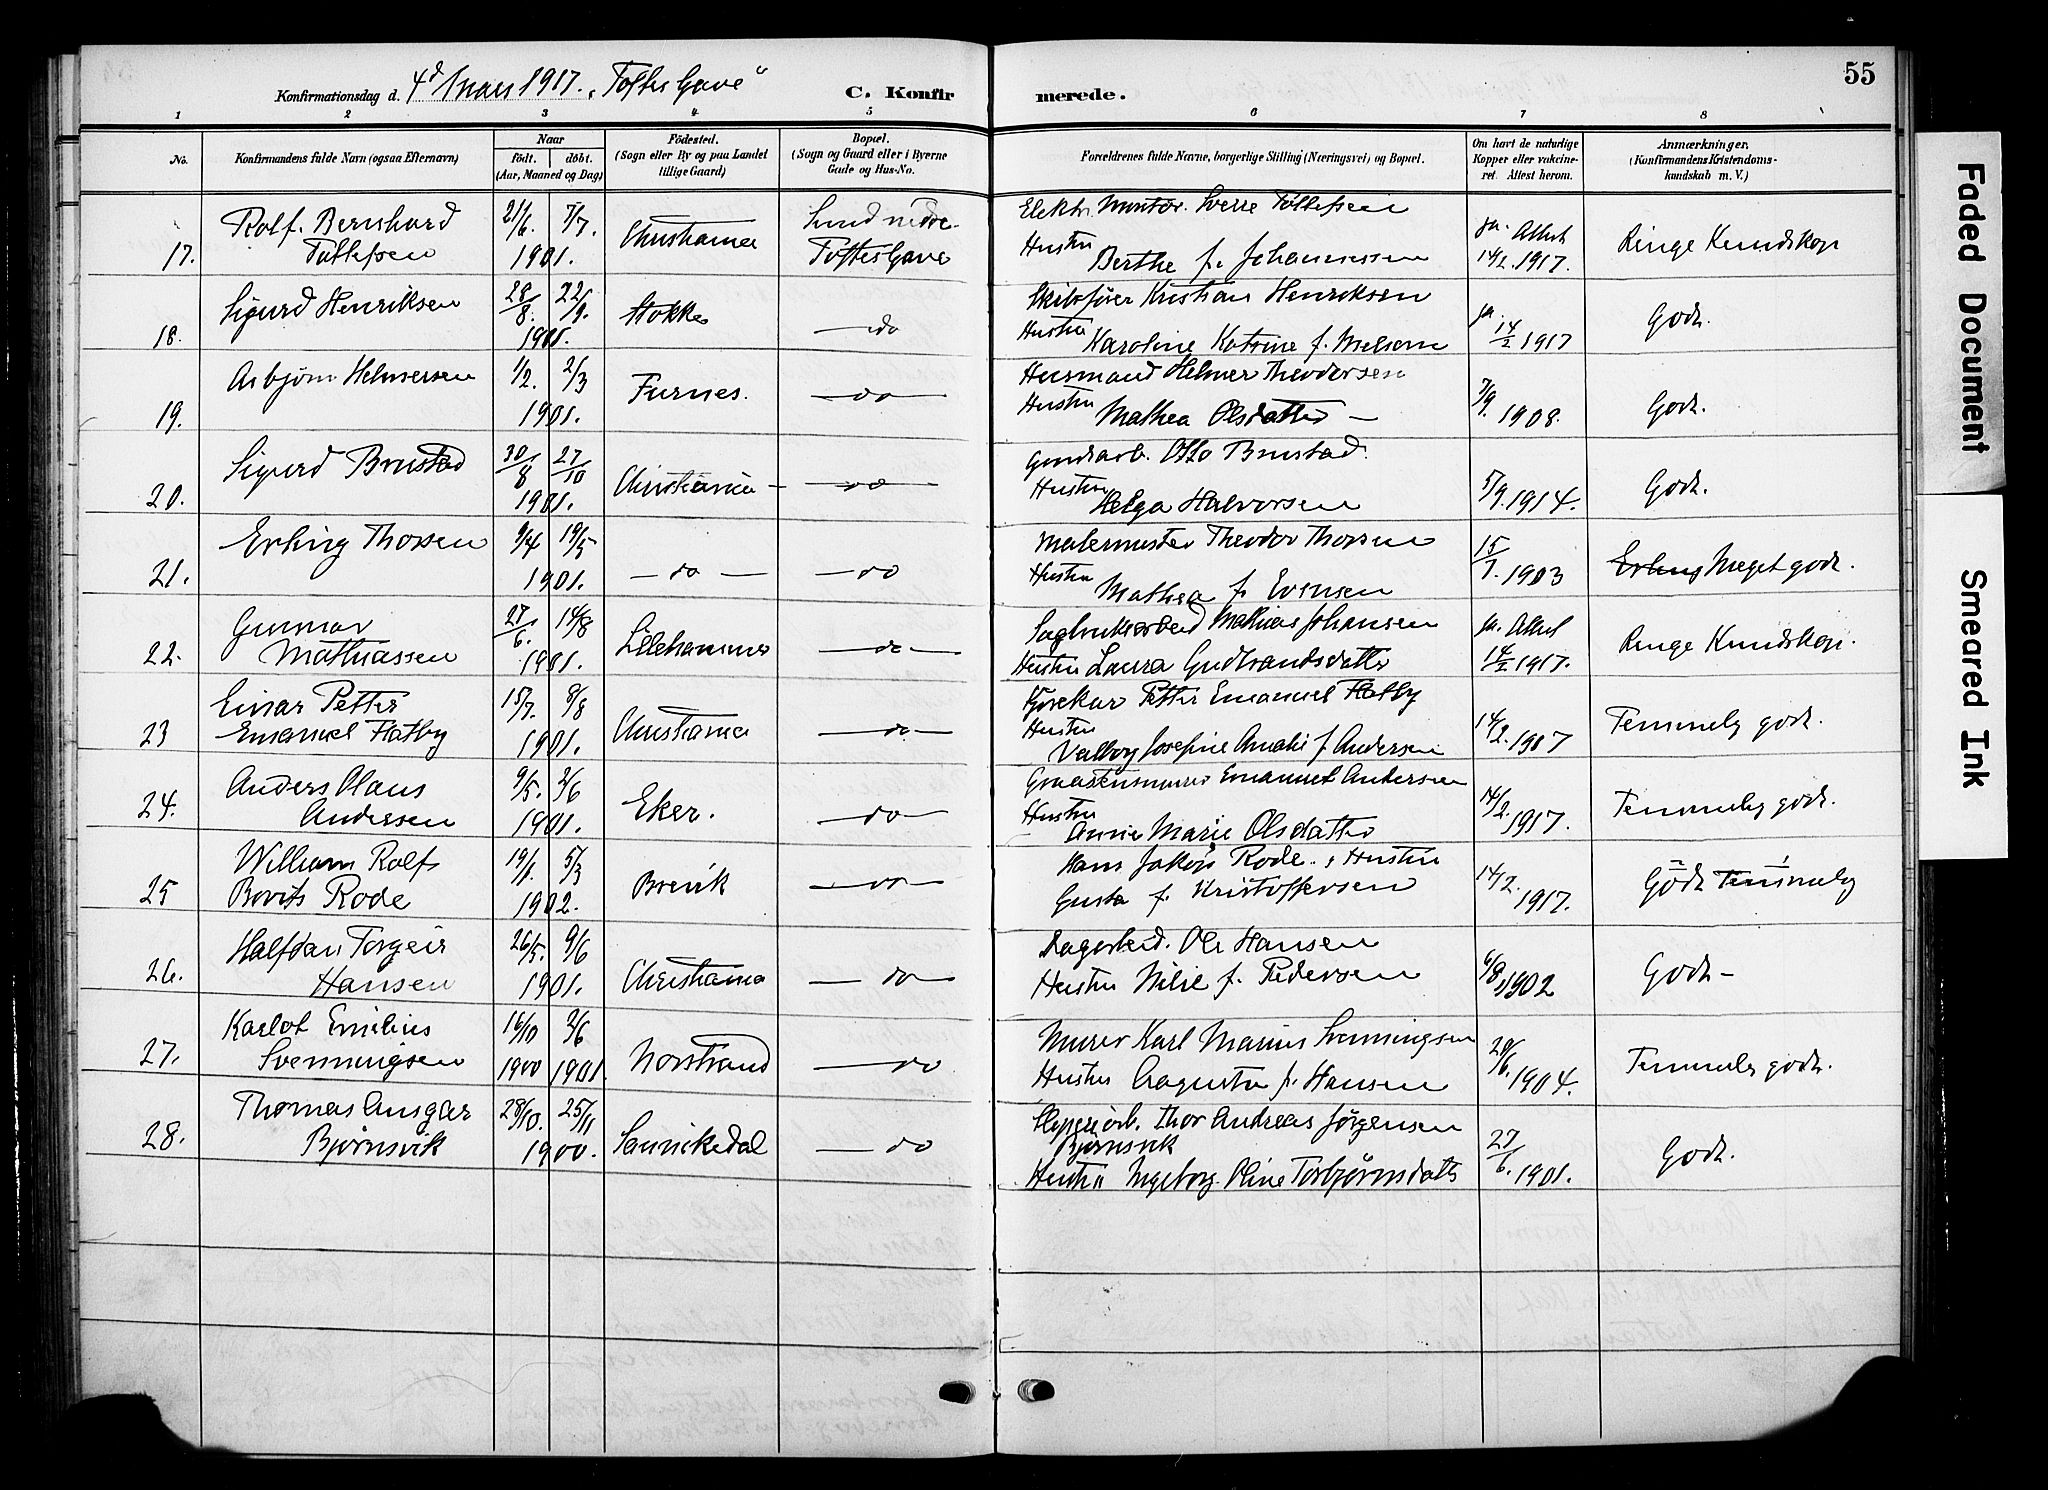 55
Konfirmationsdag d. 4d Mars 1917. "Toftes Gave"
C. Konfirmerede.
1 2 3 4 5 6 7 8
No.
Konfirmandens fulde Navn (ogsaa Efternavn)
Naar
født. døbt.
(Aar, Maaned og Dag)
Fødested.
(Sogn eller By og paa Landet
tillige Gaard)
Bopæl.
(Sogn og Gaard eller i Byerne
Gade og Hus-No.
Forældrenes fulde Navne, borgerlige Stilling (Næringsvei) og Bopæl.
Om havt de naturlige
Kopper eller vakcine-
ret. Attest herom.
Anmærkninger.
(Konfirmandens Kristendoms-
kundskab m. V.)
17. Rolf. Bernhard Tollefsen 21/6. 7/7. 1901. Christiania Lund nedre Toftes Gave
Elektr. Montør. Sverre Tollefsen
Hustru Berthe f. Johannessen ja. Attest 14/2. 1917. Ringe Kundskap
18. Sigurd Henriksen 28/8. 22/9. 1901. Stokke do
Skibsfører Kristian Henriksen
Hustru Karoline Katrine f. Melsom ja. 14/2 1917 Godt.
19. Asbjørn Helmersen 1/2. 2/3 1901. Furnes. do
Husmand Helmer Theodorsen
Hustru Mathea Olsdatter 7/9. 1908. Godt.
20. Sigurd Brustad 30/8 27/10 1901. Christiania do
Gaardsarb. Otto Brustad.
Hustru Helga Halvorsen 5/9. 1914. Godt.
21. Erling Thorsen 9/4 19/5 1901. do do
Malermester Theodor Thorsen
Hustru Mathea f. Evensen 15/1. 1903 Erling Meget godt.
22. Gunnar Mathiassen 27/6. 14/8 1901. Lillehammer do
Sagbruksarbeid Mathias Johansen
Hustru Laura Gudbrandsdatter ja. Attest 14/2 1917. Ringe Kundskap.
23 Einar Petter Emanuel Flatby 15/7. 8/8 1901. Christiania do
Kjørekar Petter Emanuel Flatby
Hustru Valborg Josefine Amalie f. Andersen 14/2. 1917 Temmelig godt.
24. Anders Olaus Andersen 9/5. 2/6 1901. Eker. do
Graastensmurer Emanuel Andersen
Hustru Anne Marie Olsdatter 14/2. 1917. Temmelig godt.
25 William Rolfs Bovits Rode 19/1. 5/3 1902. Brevik do
Hans Jakob Rode. & Hustru
Gusta f. Kristoffersen 14/2. 1917. Godt Temmelig
26. Halfdan Torgeir Hansen 26/5. 9/6 1901. Christiania do
Dagarbeid. Ole Hansen
Hustru Nilie f. Pedersen 6/8 1902 Godt
27. Karlot Emilius Svenningsen 16/10 1900 2/6 1901. Norstrand do
Murer Karl Marius Svenningsen
Hustru Augusta f. Hansen 29/6. 1904. Temmelig godt.
28. Thomas Ansgar Bjørnsvik 28/10. 25/11 1900. Sannikedal do
Sliperiarb. Thor Andreas Jørgensen
Bjørnsvik
Hustru Ingeborg Oline Torbjørnsdatter 27/6. 1901. Godt.
Faded Document
Smeared Ink